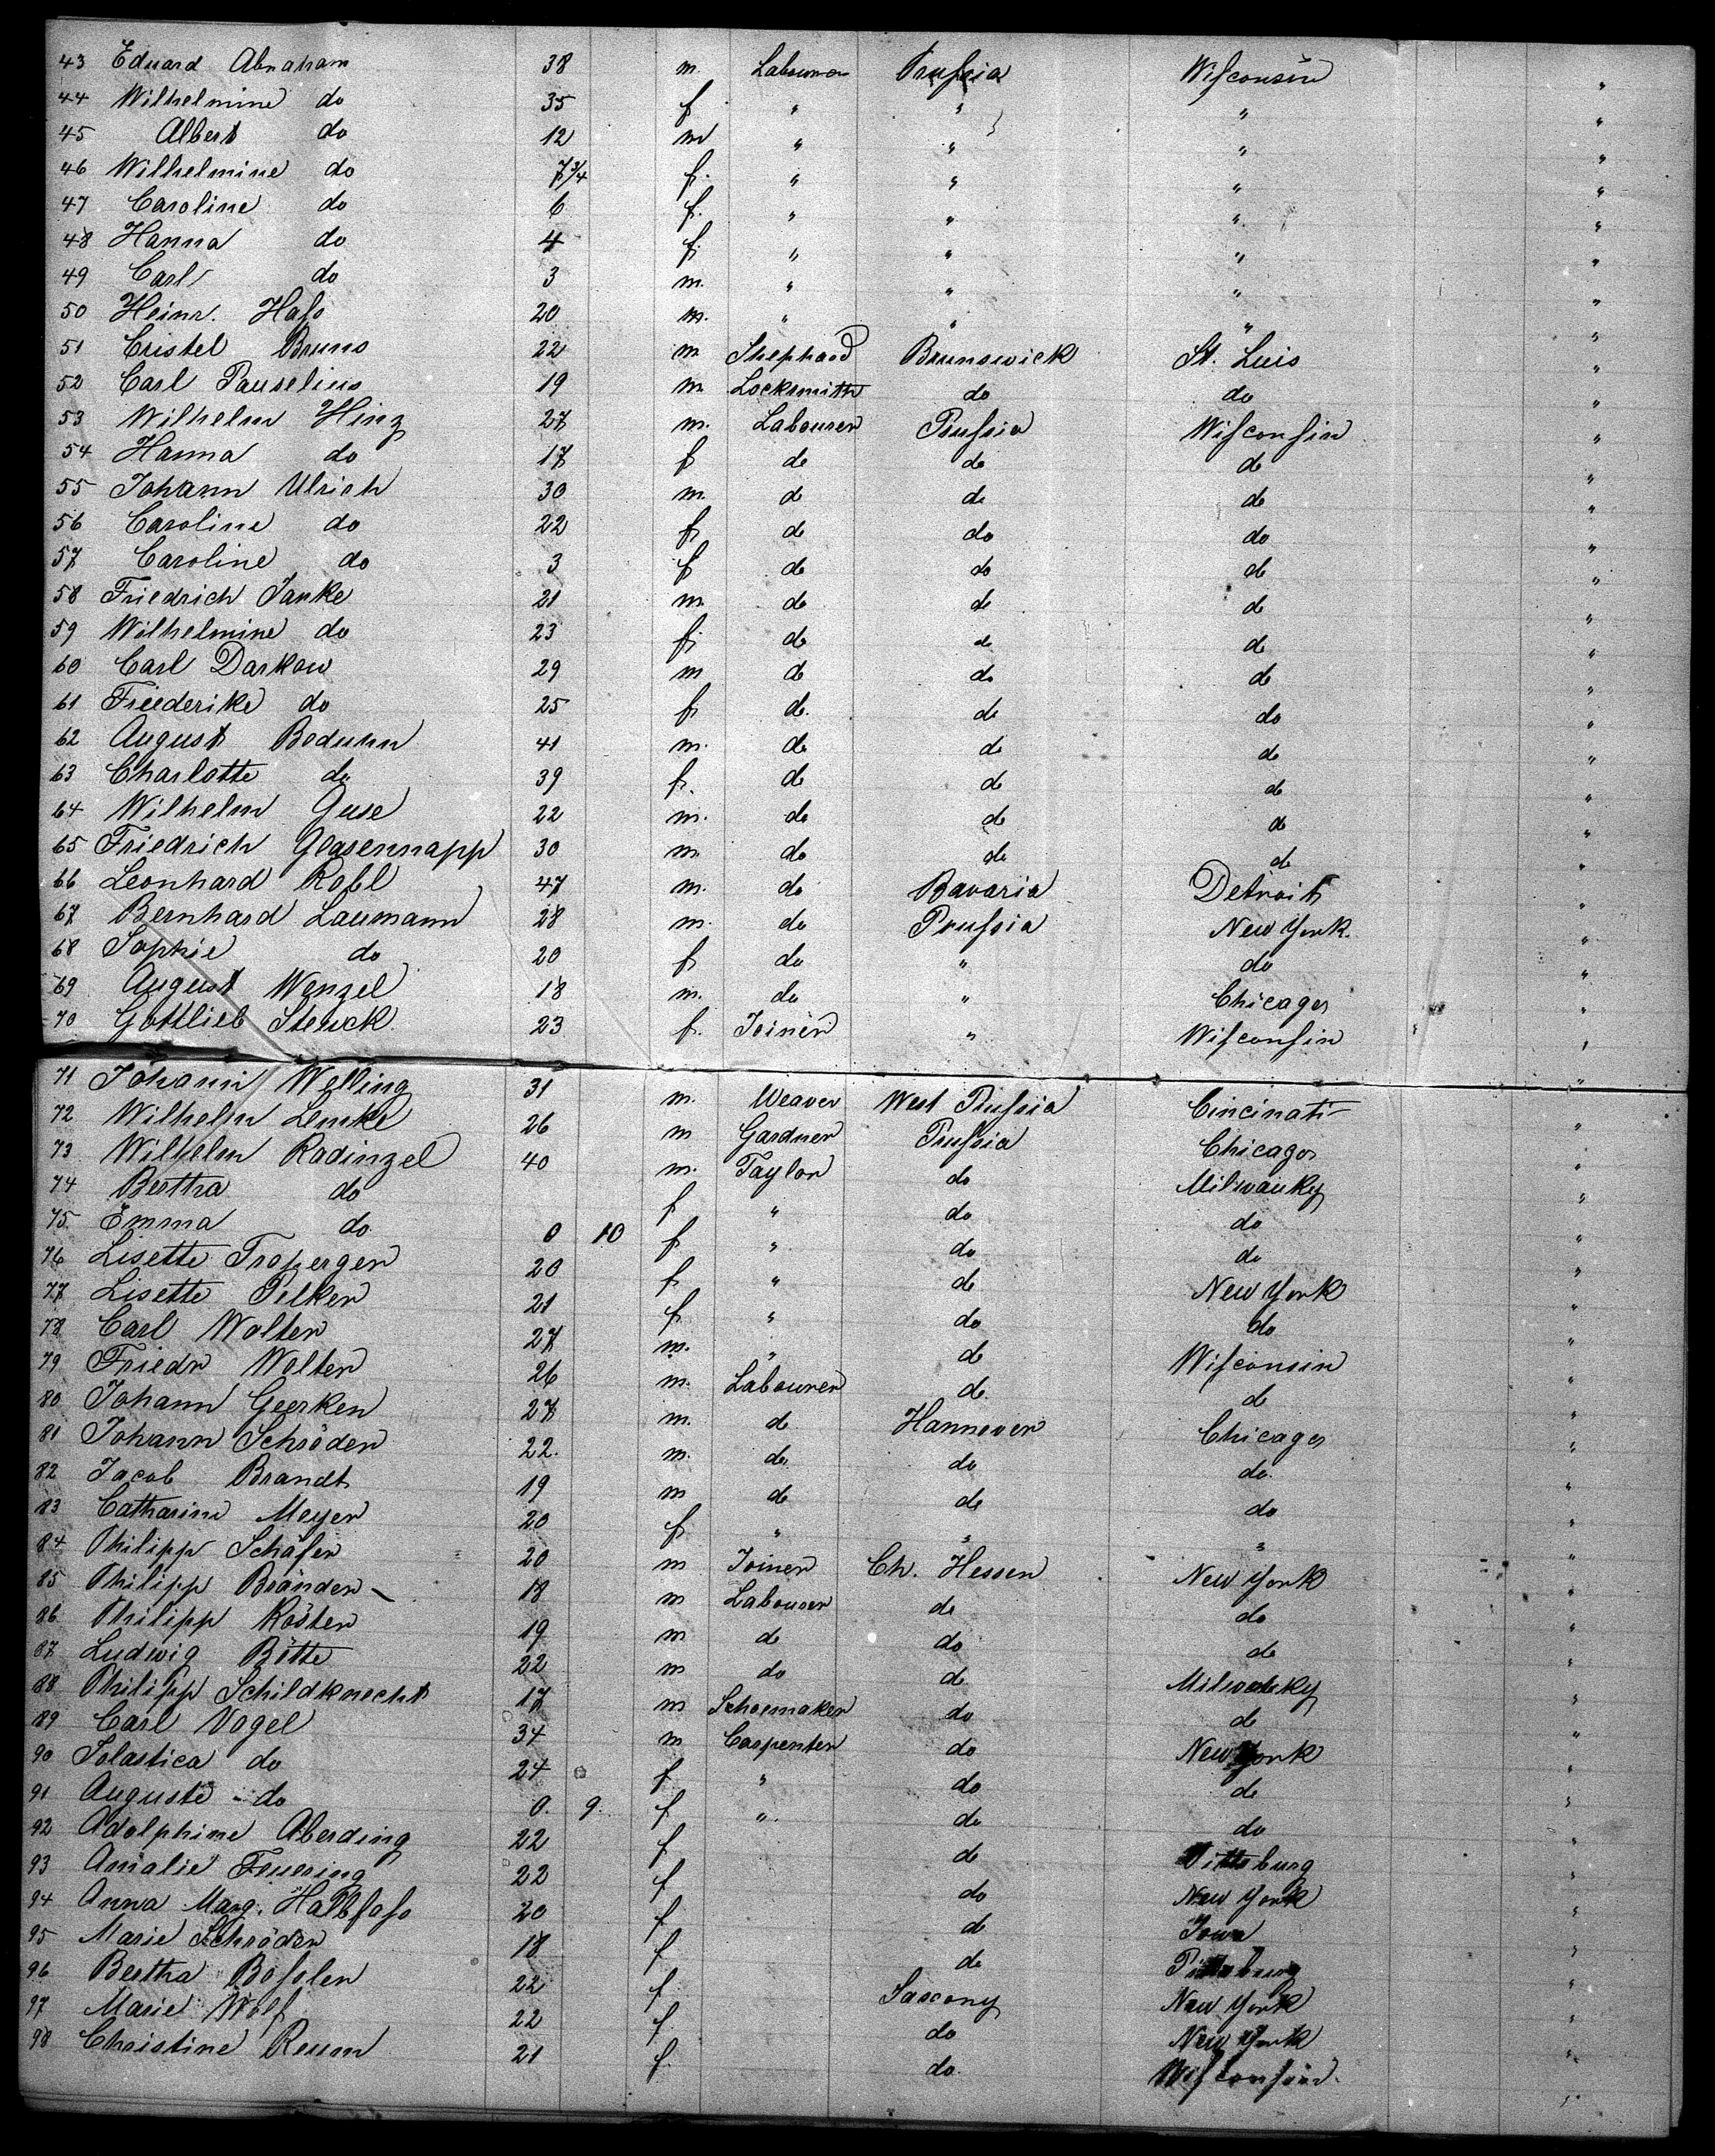 43 Eduard Abraham 38 m. Labourer Prussia Wisconsin "
44 Wilhelmine do 35 f " " " "
45 Albert do 12 m " " " "
46 Wilhelmine do 7 3/4 f. " " " "
47 Caroline do 6 f. " " " "
48 Hanna do 4 f. " " " "
49 Carl do 3 m. " " " "
50 Heinr. Hass 20 m. " " " "
51 Cristel Bruns 22 m Shephard Brunswick St. Luis "
52 Carl Pauselius 19 m Locksmith do do "
53 Wilhelm Hinz 27 m. Labourer Prussia Wisconsin "
54 Hanna do 17 f do do do "
55 Johann Ulrich 30 m. do do do "
56 Caroline do 22 f do do do "
57 Caroline do 3 f do do do "
58 Friedrich Janke 21 m. do do do "
59 Wilhelmine do 23 f. do do do "
60 Carl Darkow 29 m do do do "
61 Friederike do 25 f do. do do "
62 August Boduhn 41 m. do do do "
63 Charlotte do 39 f. do do do "
64 Wilhelm Guse 22 m. do do do "
65 Friedrich Glasennapp 30 m. do do do "
66 Leonhard 47 m. do Bavaria Detroit "
67 Bernhard Laumann 28 m. do Prussia New York. "
68 Sophie do 20 f do " do "
69 August Wenzel 18 m. do " Chicago "
70 Gottlieb Steuck 23 f. Joiner " Wisconsin "
71 Johann Welling 31 m. Weaver West Prussia Cincinati "
72 Wilhelm Lemke 26 m Gardner Prussia Chicago "
73 Wilhelm Radinzel 40 m. Taylor do Milwauky "
74 Bertha do f " do do "
75. Emma do 0 10 f " do do "
76 Lisette 20 f " do New York "
77 Lisette Pelker 21 f " do do "
78 Carl Wolter 27 m. " do Wisconsin "
79 Friedr Wolter 26 m. Labourer do. do "
80 Johann Geerken 27 m. do Hannover Chicago "
81 Johann Schröder 22. m. do do do. "
82 Jacob Brandt 19 m do do do "
83 Catharine Meyer 20 f " " " "
84 Philipp Schäfer 20 m Joiner Ch. Hessen New York "
85 Philipp Bränder 18 m Labourer do do "
86 Philipp Köster 19 m do do do "
87 Ludwig Bötte 22 m do do Milwauky "
88 Philipp Schildknecht 17 m Schoemaker do do "
89 Carl Vogel 34 m Carpenter do New York "
90 Solastica do 24 f " do do "
91 Auguste do 0. 9. f " do do "
92 Adolphine Aberding 22 f do Pittsburg "
93 Amalie Feuering 22 f do New York "
94 Anna Marg. Halbfass 20 f do Iowa "
95 Marie Schröder 18 f do Pittsburg "
96 Bertha Bossler 22 f Saxony New York "
97 Marie Wolf 22 f do New York "
98 Christine Reum 21 f. do. Wisconsin. "